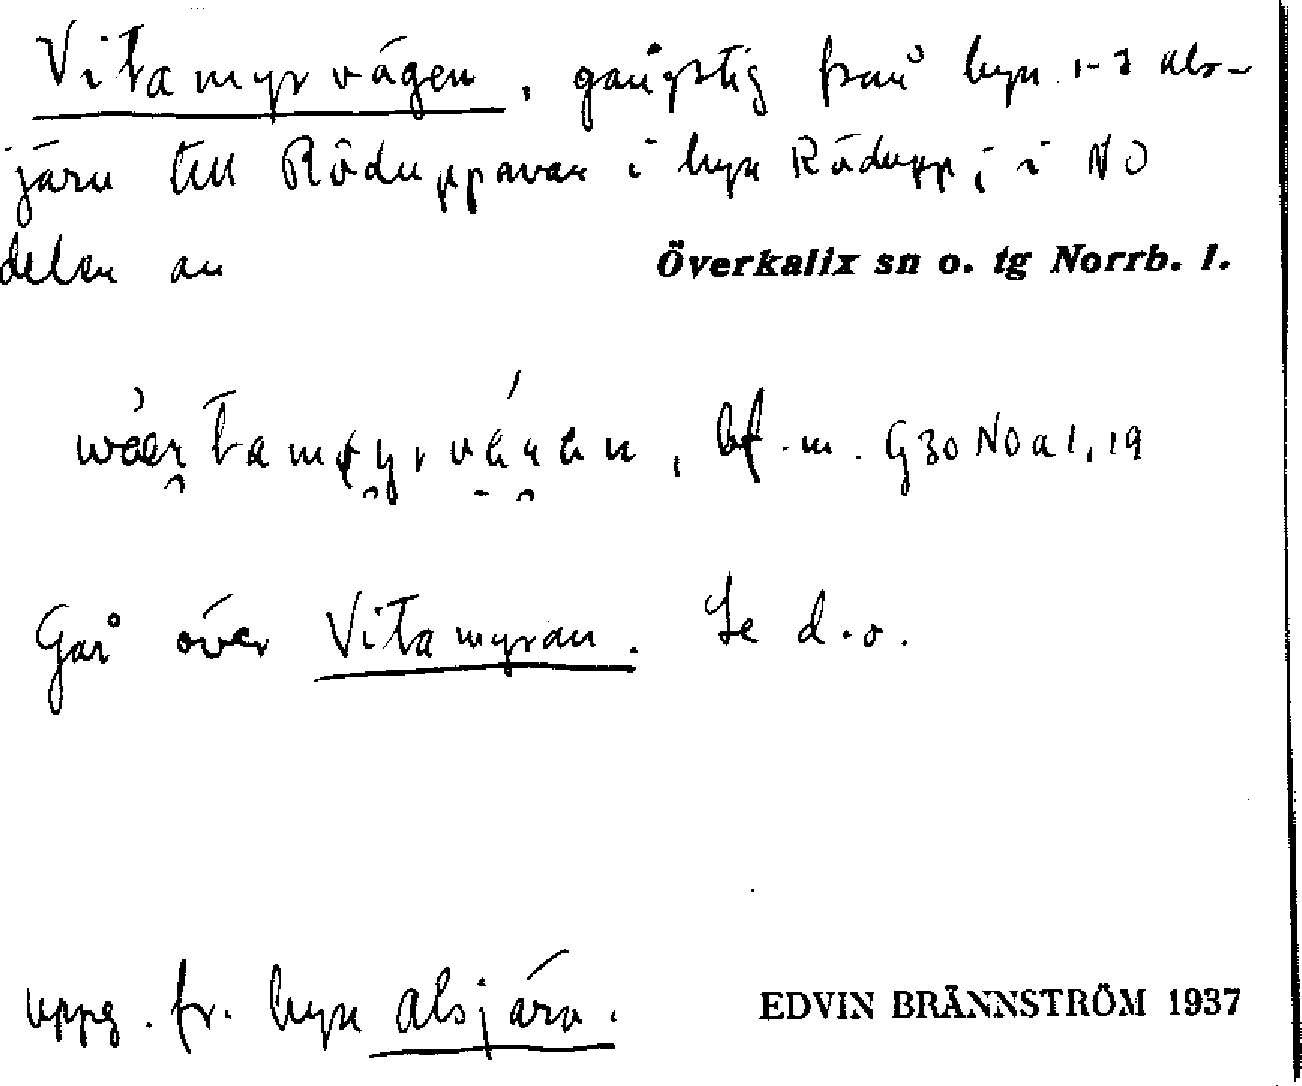 Vitamyrvägen, gångstig från byn Als-
järv till Röduppavan i byn Rödupp; i NO
delen av
Överkalix sn o. tg Norrb. l.
bf. m. G30 NO a 1, 19
Går över Vitamyran. Se d.o.
uppg. fr. byn Alsjärv.
EDVIN BRÄNNSTRÖM 1937